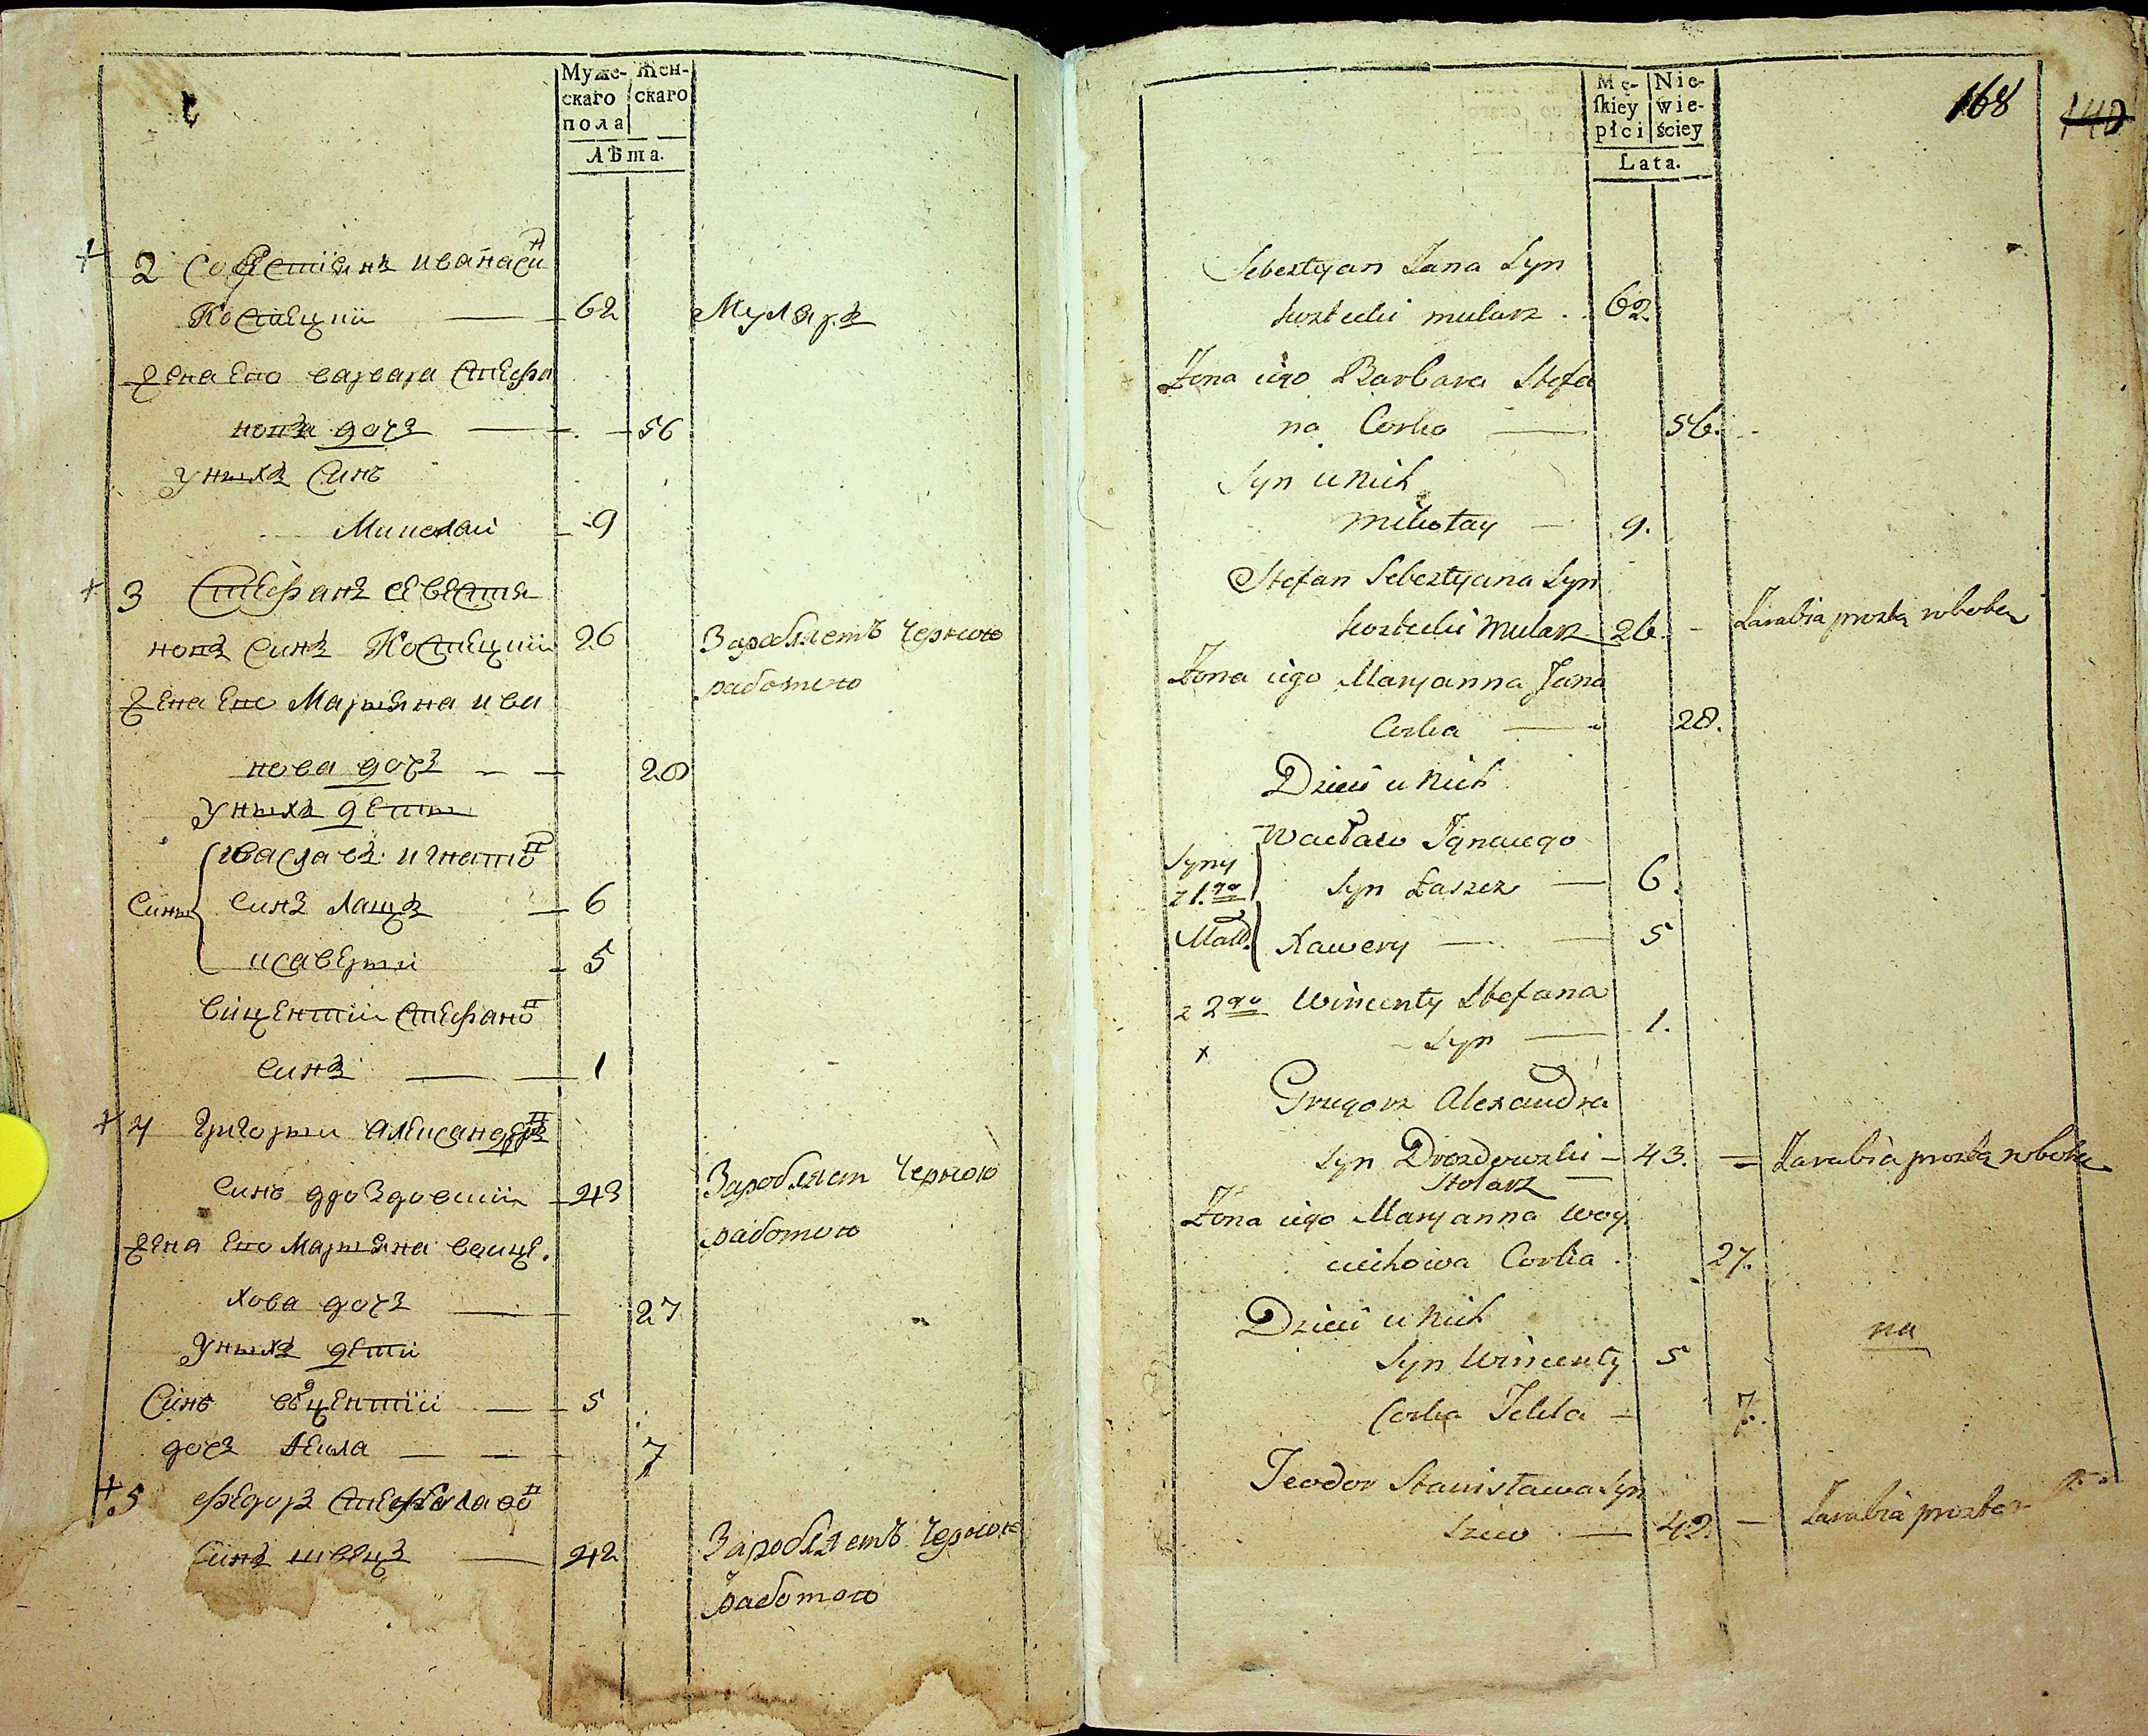 Муже-
скаго
пола
Жен-
скаго
Лѣта.
2 Себестиянъ Ивана си
Костецкии — 62 Муляръ
Жена Его варвара Стефа
нова дочъ — 56
У ныхъ Синъ
Миколаи — 9
3 Стефанъ Себестия
новъ Синъ Костецкии 26 Заробляетъ Черною
работою
Жена Его Марыяна ива
нова дочъ — 28
У ныхъ дети
Сины
ваславъ игнатовъ
синъ Лащъ — 6
исаверии — 5
вицентии Стефановъ
синъ — 1
4 Григорыи Александръ
синъ дроздовскии — 43 Заробляет Черною
работою
Жена Его Марыяна воице.
хова дочъ — 27
У ныхъ дети
Синъ вицентии — 5
дочъ текла — 7
5 Федоръ
Синъ швецъ — 42 Заробляетъ Черною
работою
Mę-
skiey
płci
Nie-
wie-
ściey
Lata.
168
140
Sebestyan Jana Syn
Kostecki mularz . . 62.
Żona iego Barbara Stefa
na Corka — 56.
Syn u Nich
Mikołay — 9.
Stefan Sebestyana Syn
Kostecki Mularz 26. – Zarabia prostą robotą
Żona iego Maryanna Jana
Corka — 28.
Dzieci u Nich
Syny
z 1.go
Małż.
Wacław Ignacego
Syn Łaszcz — 6.
Xawery — 5
z 2go Wincenty Stefana
x Syn — 1.
Grzegorz Alexandra
Syn Drozdowski – 43. = Zarabia prostą robotą
Stolarz
Żona iego Maryanna Woy
ciechowa Corka . 27.
Dzieci u Nich
Syn Wincenty 5
na
Corka Tekla – 7.
Teodor Stanisława Syn
Szewc — 42. — Zarabia prostą